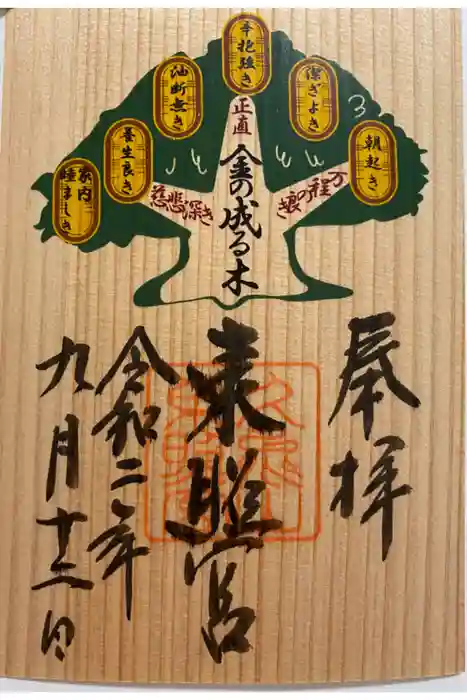 朝起き
潔ぎよき
辛抱強き
油断無き
養生良き
家内
睦ましき
正直
金の成る木
万程の良き
慈悲深き
奉拝
東照宮
令和二年
九月十二日